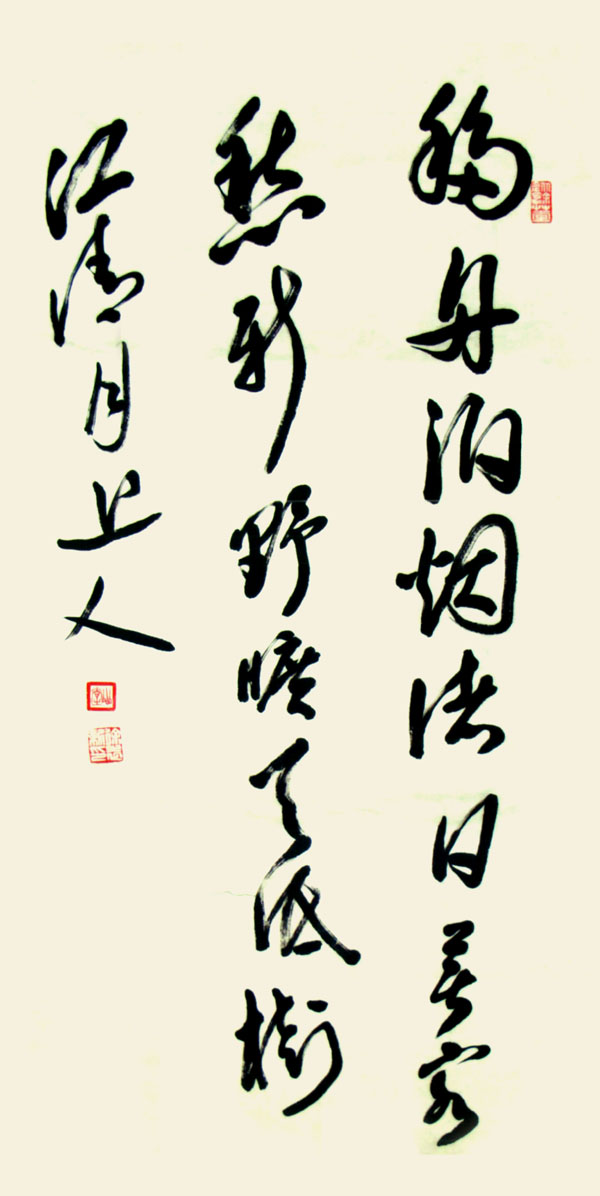 移舟泊烟渚日暮客
愁新野曠天低樹
江清月近人